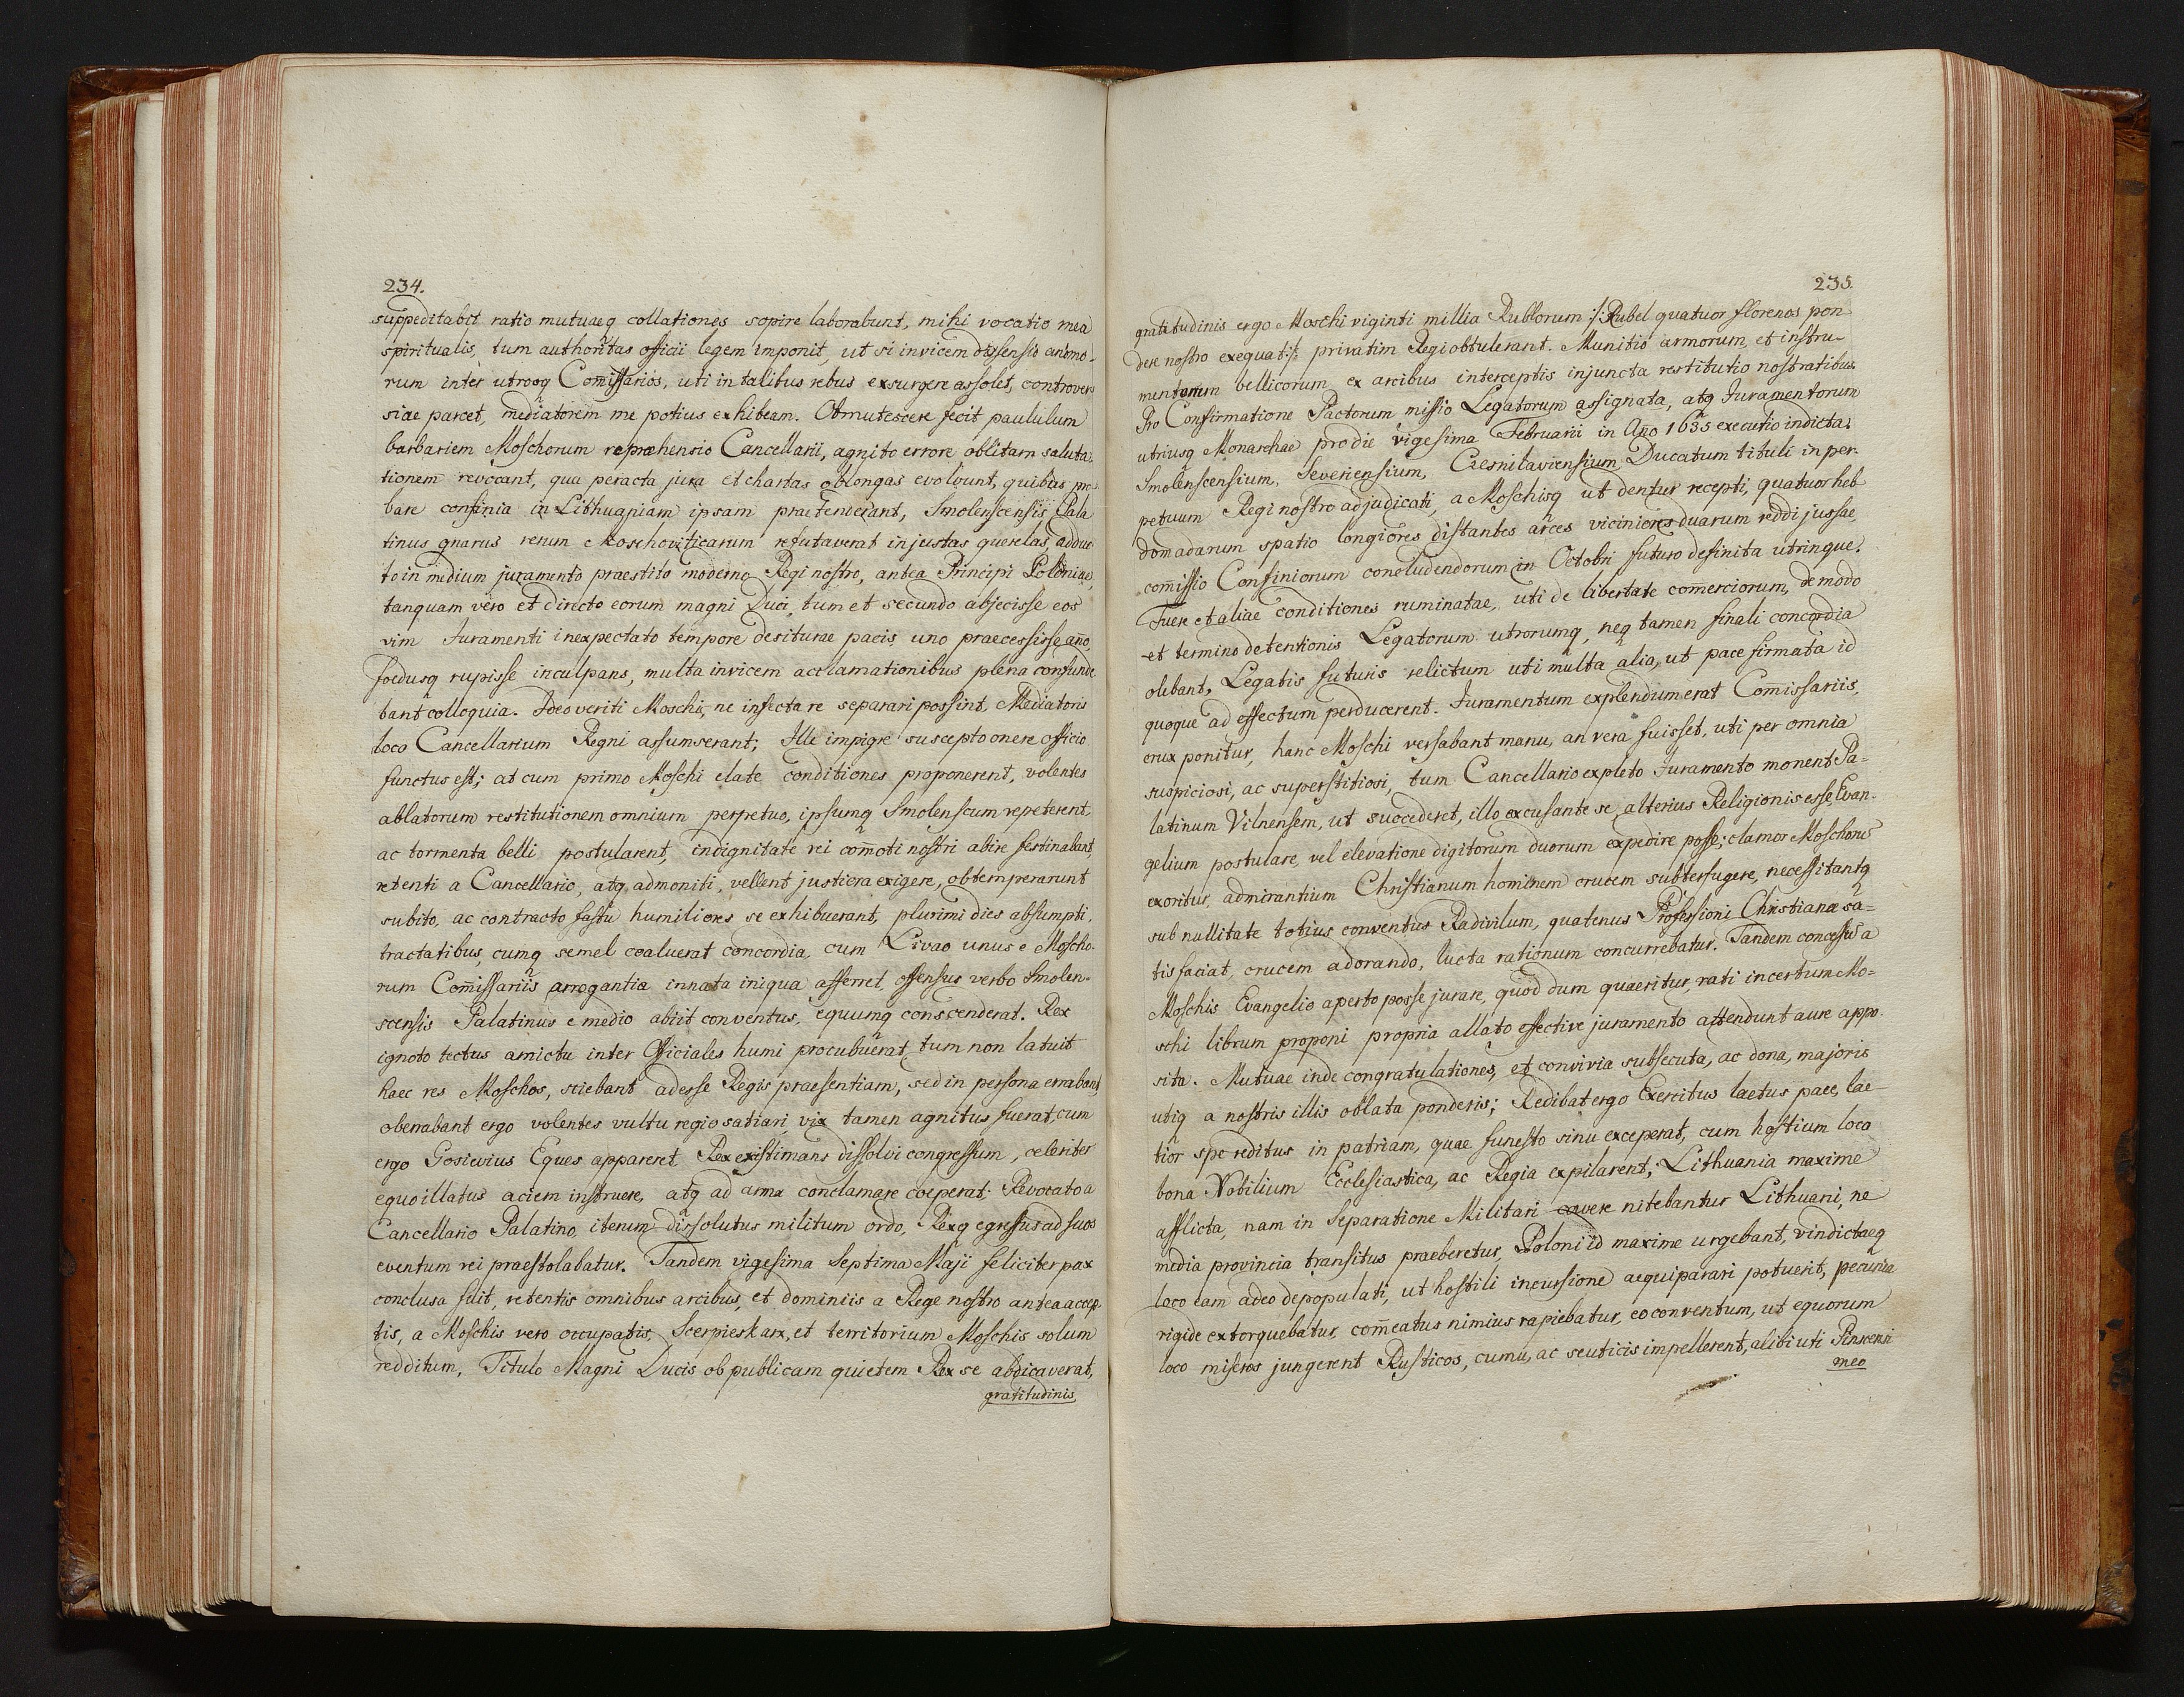 234.
suppeditabit ratio mutuaeq collationes sopire laborabunt, mihi vocatio mea
spiritualis, tum authoritas officii legem imponit, ut si invicem dissensio animo-
rum inter utrosq Com̄issarios, uti in talibus rebus exsurgere assolet, controver
siae parcet, mediatorem me potius exhibeam. Obmutescere fecit paululum
barbariem Moschorum repraehensio Cancellarii, agnito errore oblitam saluta
tionem revocant, qua peracta jura et chartas oblongas evolvunt, quibus pro
bare confinia in Lithuaniam ipsam praetenderant, Smolenscensis Pala
tinus gnarus rerum Moschoviticarum refutaverat injustas querelas, adduc
to in medium juramento praestito moderno Regi nostro, antea Principi Poloniae,
tanquam vero et directo eorum magni Duci, tum et secundo abjecisse eos
vim Juramenti inexpectato tempore desiturae pacis uno praecessisse año,
foedusq rupisse inculpans, multa invicem acclamationibus plena confunde
bant colloquia. Ideo veriti Moschi, ne infecta re separari possint, Mediatoris
loco Cancellarium Regni assumserant; Ille impigre suscepto onere officio
functus est; at cum primo Moschi elate conditiones proponerent, volentes
ablatorum restitutionem omnium perpetuo, ipsumq Smolenscum repeterent,
ac tormenta belli postularent, indignitate rei com̄oti nostri abire festinabant,
retenti a Cancellario, atq admoniti, vellent justiora exigere, obtemperarunt
subito, ac contracto fastu humiliores se exhibuerant, plurimi dies absumpti,
tractatibus, cumq semel coaluerat concordia, cum Livao unus e Moscho-
rum Com̄issariis arrogantia innata iniqua asserret, offensus verbo Smolen-
scensis Palatinus e medio abiit conventus, equumq conscenderat. Rex
ignoto tectus amictu inter Officiales humi procubuerat, tum non latuit
haec res Moschos, sciebant adesse Regis praesentiam, sed in persona errabant,
oberrabant ergo volentes vultu regio satiari, vix tamen agnitus fuerat, cum
ergo Gosievius Eques appareret Rex existimans dissolvi congressum, celeriter
equo illatus aciem instruere, atq ad arma conclamare coeperat; Revocato a
Cancellario Palatino, iterum dissolutus militum ordo, Rexq egressus ad suos
eventum rei praestolabatur. Tandem vigesima Septima Maji feliciter pax
conclusa fuit, retentis omnibus arcibus, et dominiis a Rege nostro antea accep
tis, a Moschis vero occupatis, Scerpiesk arx, et territorium Moschis solum
redditum, Titulo Magni Ducis ob publicam quietem Rex se abdicaverat,
gratitudinis
235.
gratitudinis ergo Moschi viginti millia Rublorum :/: Rubel quatuor florenos pon
dere nostro exequat :/: privatim Regi obtulerant. Munitio armorum, et instru-
mentorum bellicorum ex arcibus interceptis injuncta restitutio nostratibus.
Pro Confirmatione Pactorum missio Legatorum assignata, atq Juramentorum
utriusq Monarchae pro die vigesima Februarii in Año 1635 executio indicta;
Smolenscensium, Severiensium, Czernilaviensium Ducatum tituli in per-
petuum Regi nostro adjudicati, a Moschisq ut dentur recepti, quatuor heb
domadarum spatio longiores distantes arces viciniores duarum reddi jussae,
com̄issio Confiniorum concludendorum in Octobri futuro definita utrinque.
Fuere et aliae conditiones ruminatae, uti de libertate com̄erciorum, de modo
et termino detentionis Legatorum utrorumq, neq tamen finali concordia
olebant, Legatis futuris relictum uti multa alia, ut pace firmata id
quoque ad effectum perducerent. Juramentum explendum erat Com̄issariis,
crux ponitur, hanc Moschi versabant manu, an vera fuisset, uti per omnia
suspiciosi, ac superstitiosi, tum Cancellario expleto Juramento monent Pa-
latinum Vilnensem, ut succederet, illo excusante se, alterius Religionis esse, Evan-
gelium postulare, vel elevatione digitorum duorum expedire posse; clamor Moschorum
exoritur, admirantium Christianum hominem crucem subterfugere, necessitantq
sub nullitate totius conventus Radivilum, quatenus Professioni Christianae sa-
tisfaciat, crucem adorando, lucta rationum concurrebatur. Tandem concessum a
Moschis Evangelio aperto posse jurare, quod dum quaeritur, rati incertum Mo-
schi librum proponi propria allato effective juramento attendunt aure appo-
sita. Mutuae inde congratulationes, et convivia subsecuta, ac dona, majoris
utiq a nostris illis oblata ponderis; Redibat ergo Exercitus laetus pace, lae-
tior spe reditus in patriam, quae funesto sinu exceperat, cum hostium loco
bona Nobilium Ecclesiastica, ac Regia expilarent; Lithuania maxime
afflicta, nam in Separatione Militari cavere nitebantur Lithuani, ne
media provincia transitus praeberetur, Poloni id maxime urgebant, vindictaeq
loco eam adeo depopulati, ut hostili incursione aequiparari potuerit, pecunia
rigide extorquebatur, com̄eatus nimius rapiebatur, eo conventum, ut equorum
loco miseros jungerent Rusticos, cumu, ac scuticis impellerent, alibi uti Pinscensi
meo